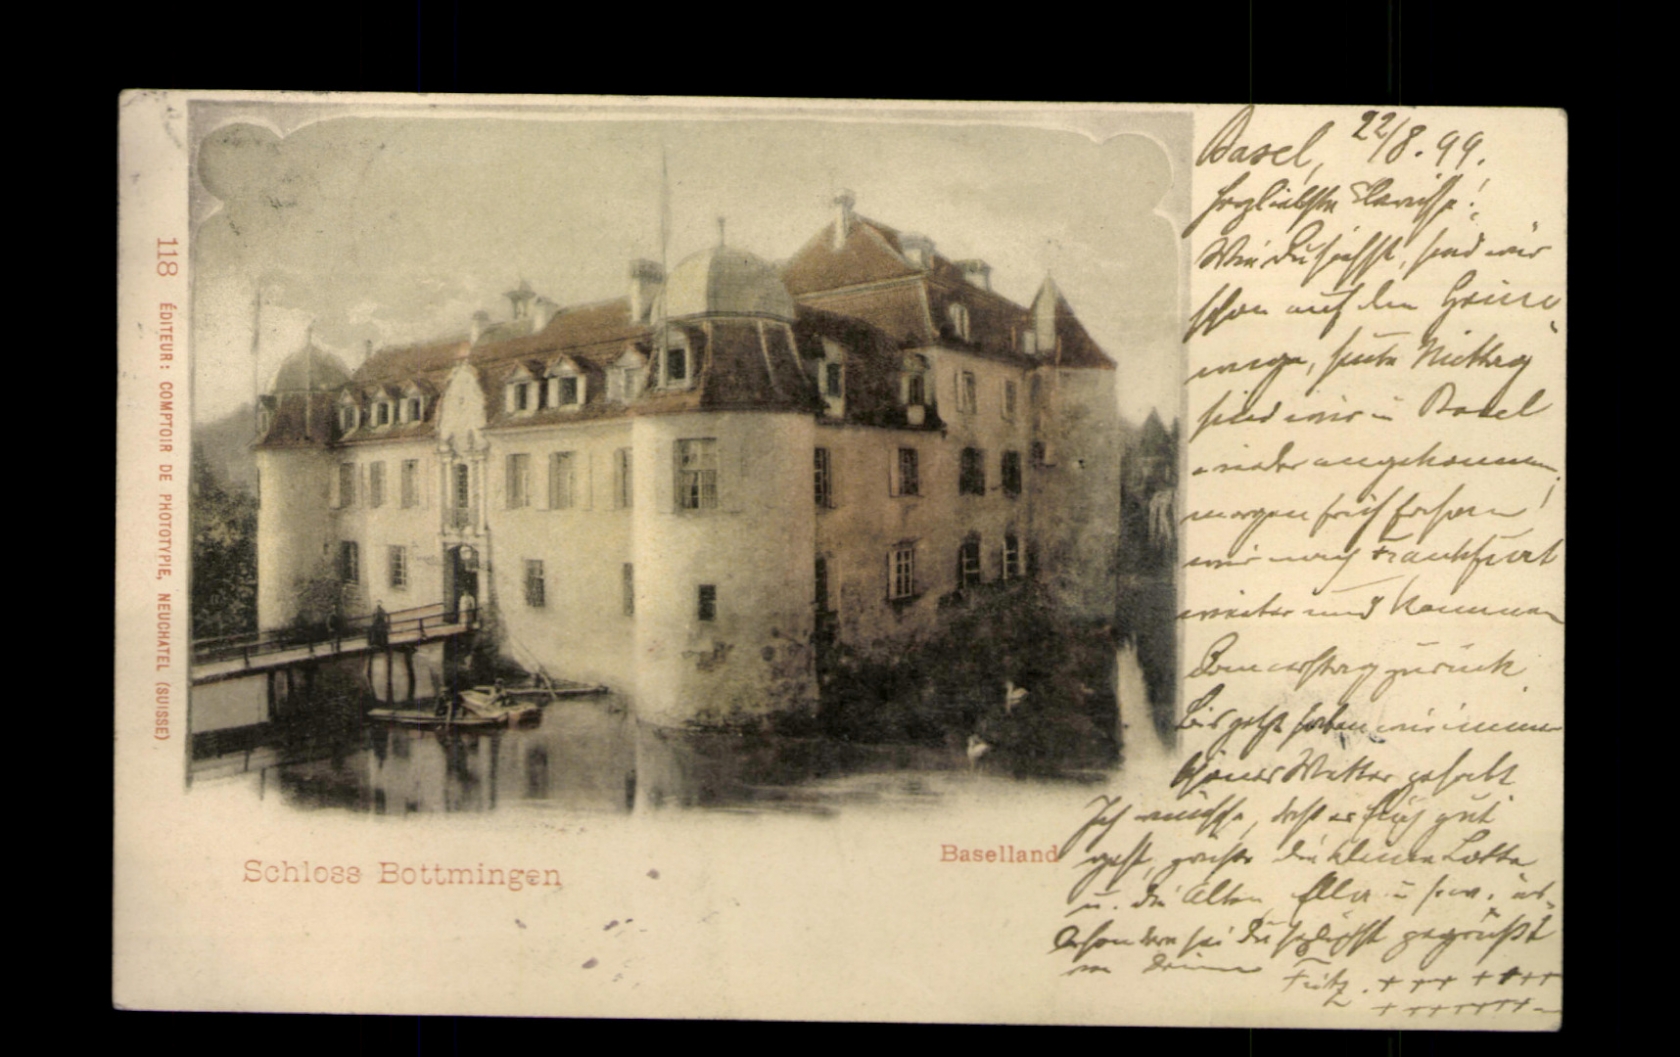 118 ÉDITEUR: COMPTOIR DE PHOTOTYPIE, NEUCHATEL (SUISSE)
Schloss Bottmingen
Baselland
Basel, 22/8.99.
Herzliebste Clarisse!
Wie Du siehst, sind wir
schon auf dem Heim
wege, heute Mittag
sind wir in Basel
wieder angekommen,
morgen früh fahren
wir nach Frankfurt
weiter und kommen
Donnerstag zurück
Bis jetzt haben wir immer
schönes Wetter gehabt
Ich wünsche, daß es Euch gut
geht, grüße die kleine Lotte
u. die Alten
sei Du herzlichst gegrüßt
von Deinem Fritz. + + + + + + +
+ + + + + + + +